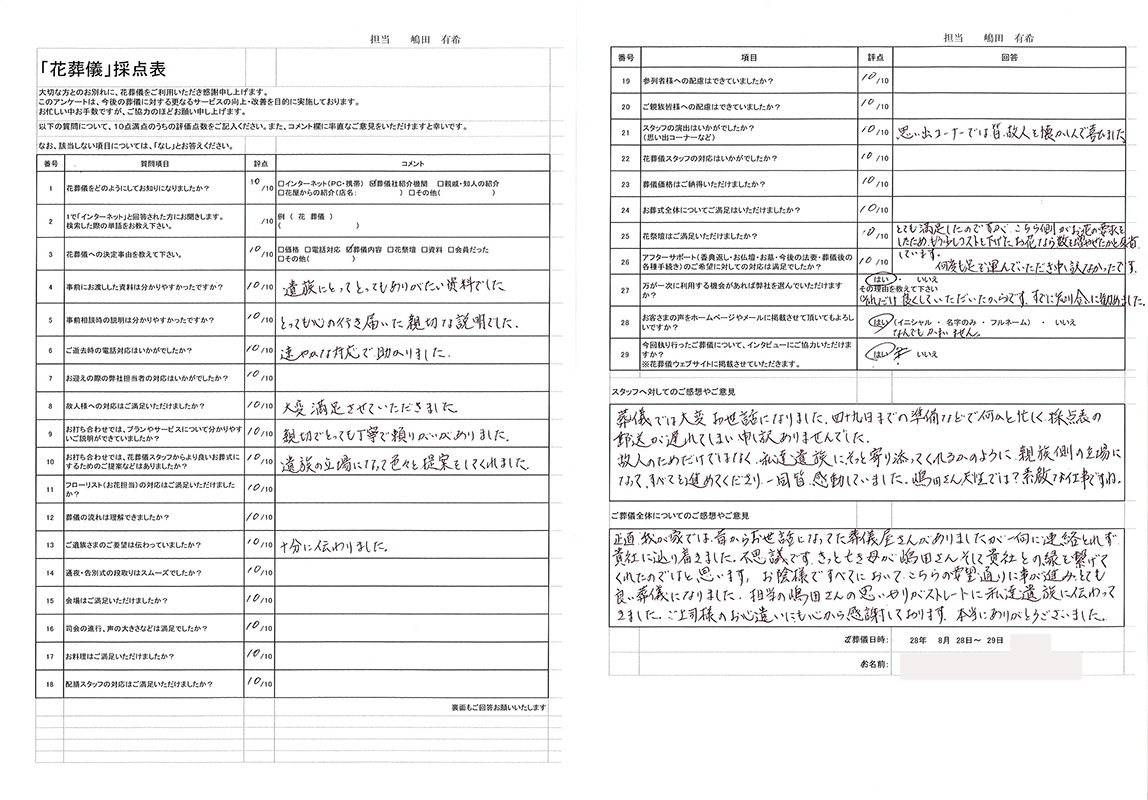 担当 嶋田 有希
「花葬儀」採点表
大切な方とのお別れに、花葬儀をご利用いただき感謝申し上げます。
このアンケートは、今後の葬儀に対する更なるサービスの向上・改善を目的に実施しております。
お忙しい中お手数ですが、ご協力のほどお願い申し上げます。
以下の質問について、10点満点のうちの評価点数をご記入ください。また、コメント欄に率直なご意見をいただけますと幸いです。
なお、該当しない項目については、「なし」とお答えください。
番号 質問項目 評点 コメント
1 花葬儀をどのようにしてお知りになりましたか? 10/10 □インターネット(PC・携帯) ☑葬儀社紹介機関 □親戚・知人の紹介
□花屋からの紹介(店名: ) □その他( )
2 1で「インターネット」と回答された方にお聞きします。
検索した際の単語をお教え下さい。 /10 例 ( 花 葬儀 )
( )
3 花葬儀への決定事由を教えて下さい。 10/10 □価格 □電話対応 ☑葬儀内容 □花祭壇 □資料 □会員だった
□その他( )
4 事前にお渡しした資料は分かりやすかったですか? 10/10 遺族にとってとってもありがたい資料でした
5 事前相談時の説明は分かりやすかったですか? 10/10 とっても心の行き届いた親切な説明でした.
6 ご逝去時の電話対応はいかがでしたか? 10/10 速やかな対応で助かりました.
7 お迎えの際の弊社担当者の対応はいかがでしたか? 10/10
8 故人様への対応はご満足いただけましたか? 10/10 大変満足させていただきました.
9 お打ち合わせでは、プランやサービスについて分かりやす
いご説明ができていましたか? 10/10 親切でとっても丁寧で頼りがいがありました.
10 お打ち合わせでは、花葬儀スタッフからより良いお葬式に
するためのご提案などはありましたか? 10/10 遺族の立場になって色々と提案をしてくれました.
11 フローリスト(お花担当)の対応はご満足いただけました
か? 10/10
12 葬儀の流れは理解できましたか? 10/10
13 ご遺族さまのご要望は伝わっていましたか? 10/10 十分に伝わりました.
14 通夜・告別式の段取りはスムーズでしたか? 10/10
15 会場はご満足いただけましたか? 10/10
16 司会の進行、声の大きさなどは満足でしたか? 10/10
17 お料理はご満足いただけましたか? 10/10
18 配膳スタッフの対応はご満足いただけましたか? 10/10
裏面もご回答お願いいたします
担当 嶋田 有希
番号 項目 評点 回答
19 参列者様への配慮はできていましたか? 10/10
20 ご親族皆様への配慮はできていましたか? 10/10
21 スタッフの演出はいかがでしたか?
(思い出コーナーなど) 10/10 思い出コーナーでは皆、故人を懐かしんで喜びました
22 花葬儀スタッフの対応はいかがでしたか? 10/10
23 葬儀価格はご納得いただけましたか? 10/10
24 お葬式全体についてご満足はいただけましたか? 10/10
25 花祭壇はご満足いただけましたか? 10/10 とても満足したのですが、こちら側がお花の要求を
したため、もう少しコストを下げたお花なら数を増やせたかと反省
しています.
26 アフターサポート(香典返し・お仏壇・お墓・今後の法要・葬儀後の
各種手続き)のご希望に対しての対応は満足でしたか? 10/10 何度も足を運んでいただき申し訳なかったです.
27 万が一次に利用する機会があれば弊社を選んでいただけます
か? はい ・ いいえ
その理由を教えて下さい
これだけ良くしていただいたからです. すでに知り合いに勧めました.
28 お客さまの声をホームページやメールに掲載させて頂いてもよろし
いですか? はい (イニシャル・名字のみ・フルネーム) ・ いいえ
なんでもかまいません.
29 今回執り行ったご葬儀について、インタビューにご協力いただけま
すか?
※花葬儀ウェブサイトに掲載させていただきます。 はい いいえ
スタッフへ対してのご感想やご意見
葬儀では大変お世話になりました. 四十九日までの準備などで何かと忙しく、採点表の
郵送が遅れてしまい申し訳ありませんでした.
故人のためだけではなく、私達遺族にそっと寄り添ってくれるかのように、親族側の立場に
なって、すべてを進めてくださり、一同皆、感動していました. 嶋田さん天性では?素敵なお仕事ですね.
ご葬儀全体についてのご感想やご意見
正直、我が家では、昔からお世話になってた葬儀屋さんがありましたが一向に連絡とれず
貴社に辿り着きました. 不思議です. きっと亡き母が嶋田さんそして貴社との縁を繋げて
くれたのではと思います. お陰様ですべてにおいて、こちらの要望通りに事が進み、とても
良い葬儀になりました. 担当の嶋田さんの思いやりがストレートに私達遺族に伝わって
きました. ご上司様のお心遣いにも心から感謝しております. 本当にありがとうございました.
ご葬儀日時: 28年 8月 28日～ 29日
お名前: